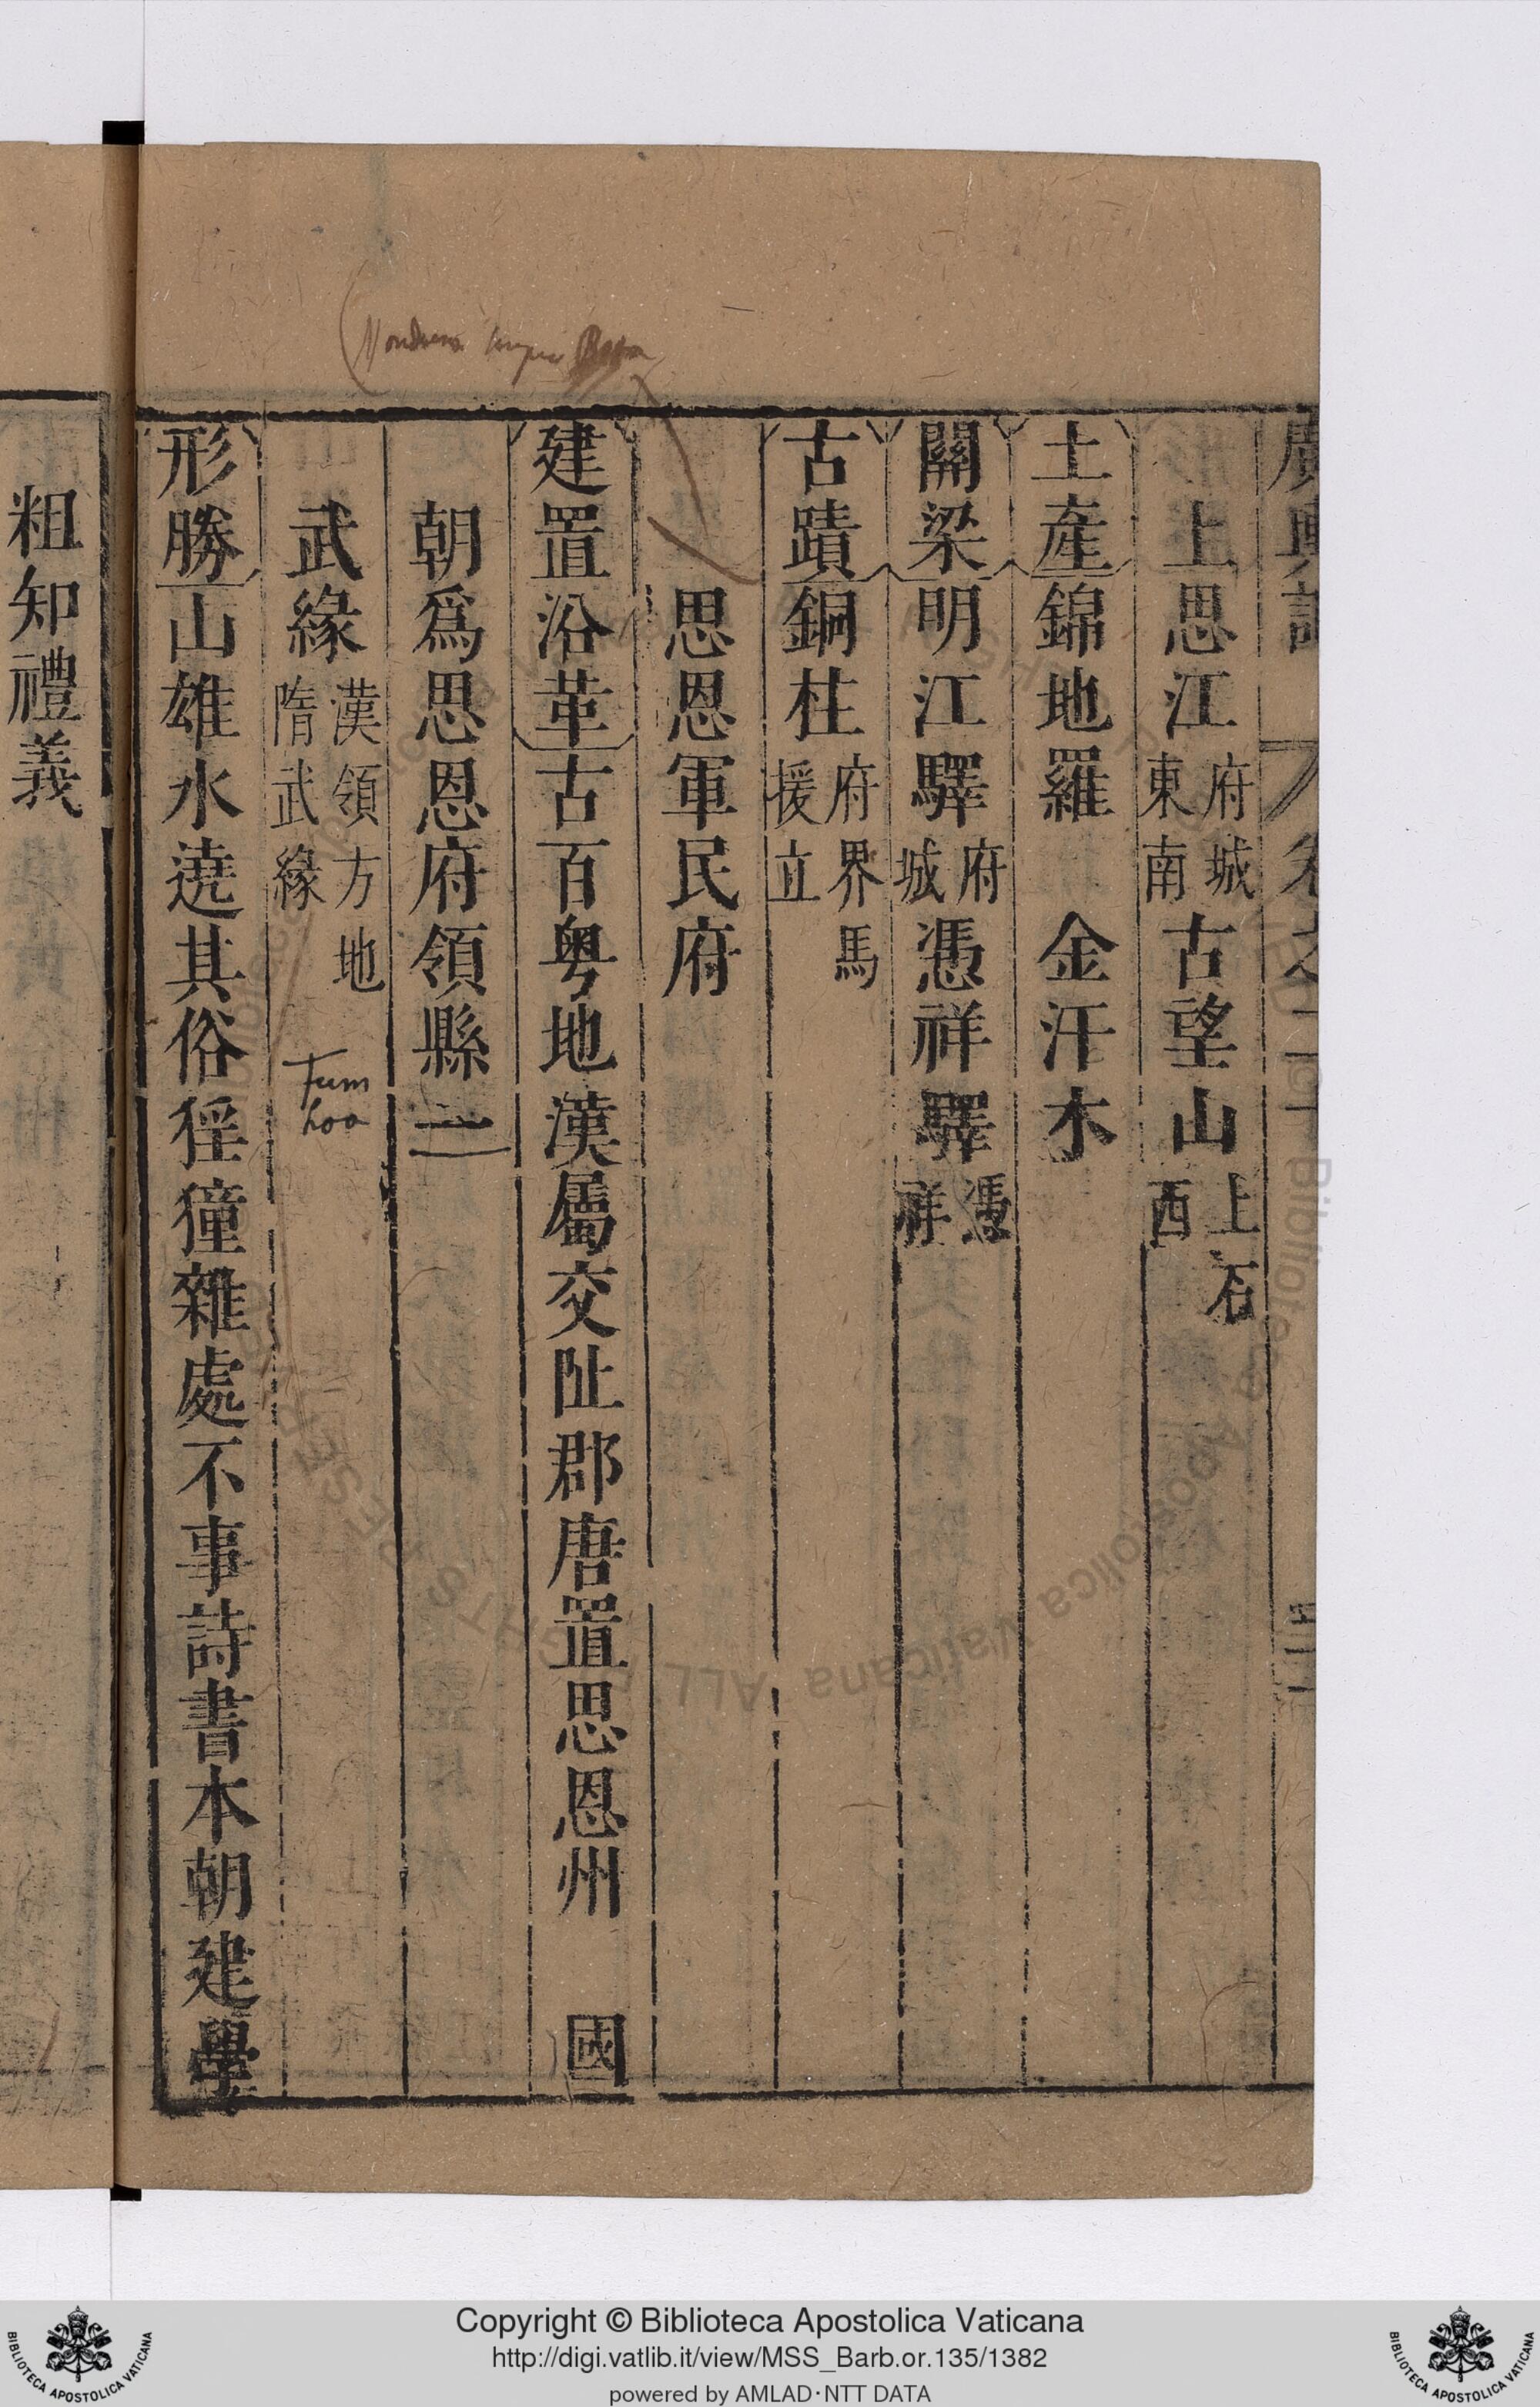 廣輿記 卷之二十
上思江府城東南古望山上石西
土產錦地羅 金汗木
關梁明江驛府城憑祥驛憑祥
古蹟銅柱府界馬援立
思恩軍民府
建置沿革古百粤地漢屬交阯郡唐置思恩州 國
朝爲思恩府領縣二
武緣漢領方地隋武緣
Tum
hoa
形勝山雄水遶其俗猺獞雜處不事詩書本朝建學
粗知禮義
Biblioteca Apostolica Vaticana ALL RIGHTS RESERVED
Copyright © Biblioteca Apostolica Vaticana
http://digi.vatlib.it/view/MSS_Barb.or.135/1382
powered by AMLAD·NTT DATA
BIBLIOTECA APOSTOLICA VATICANA
BIBLIOTECA APOSTOLICA VATICANA